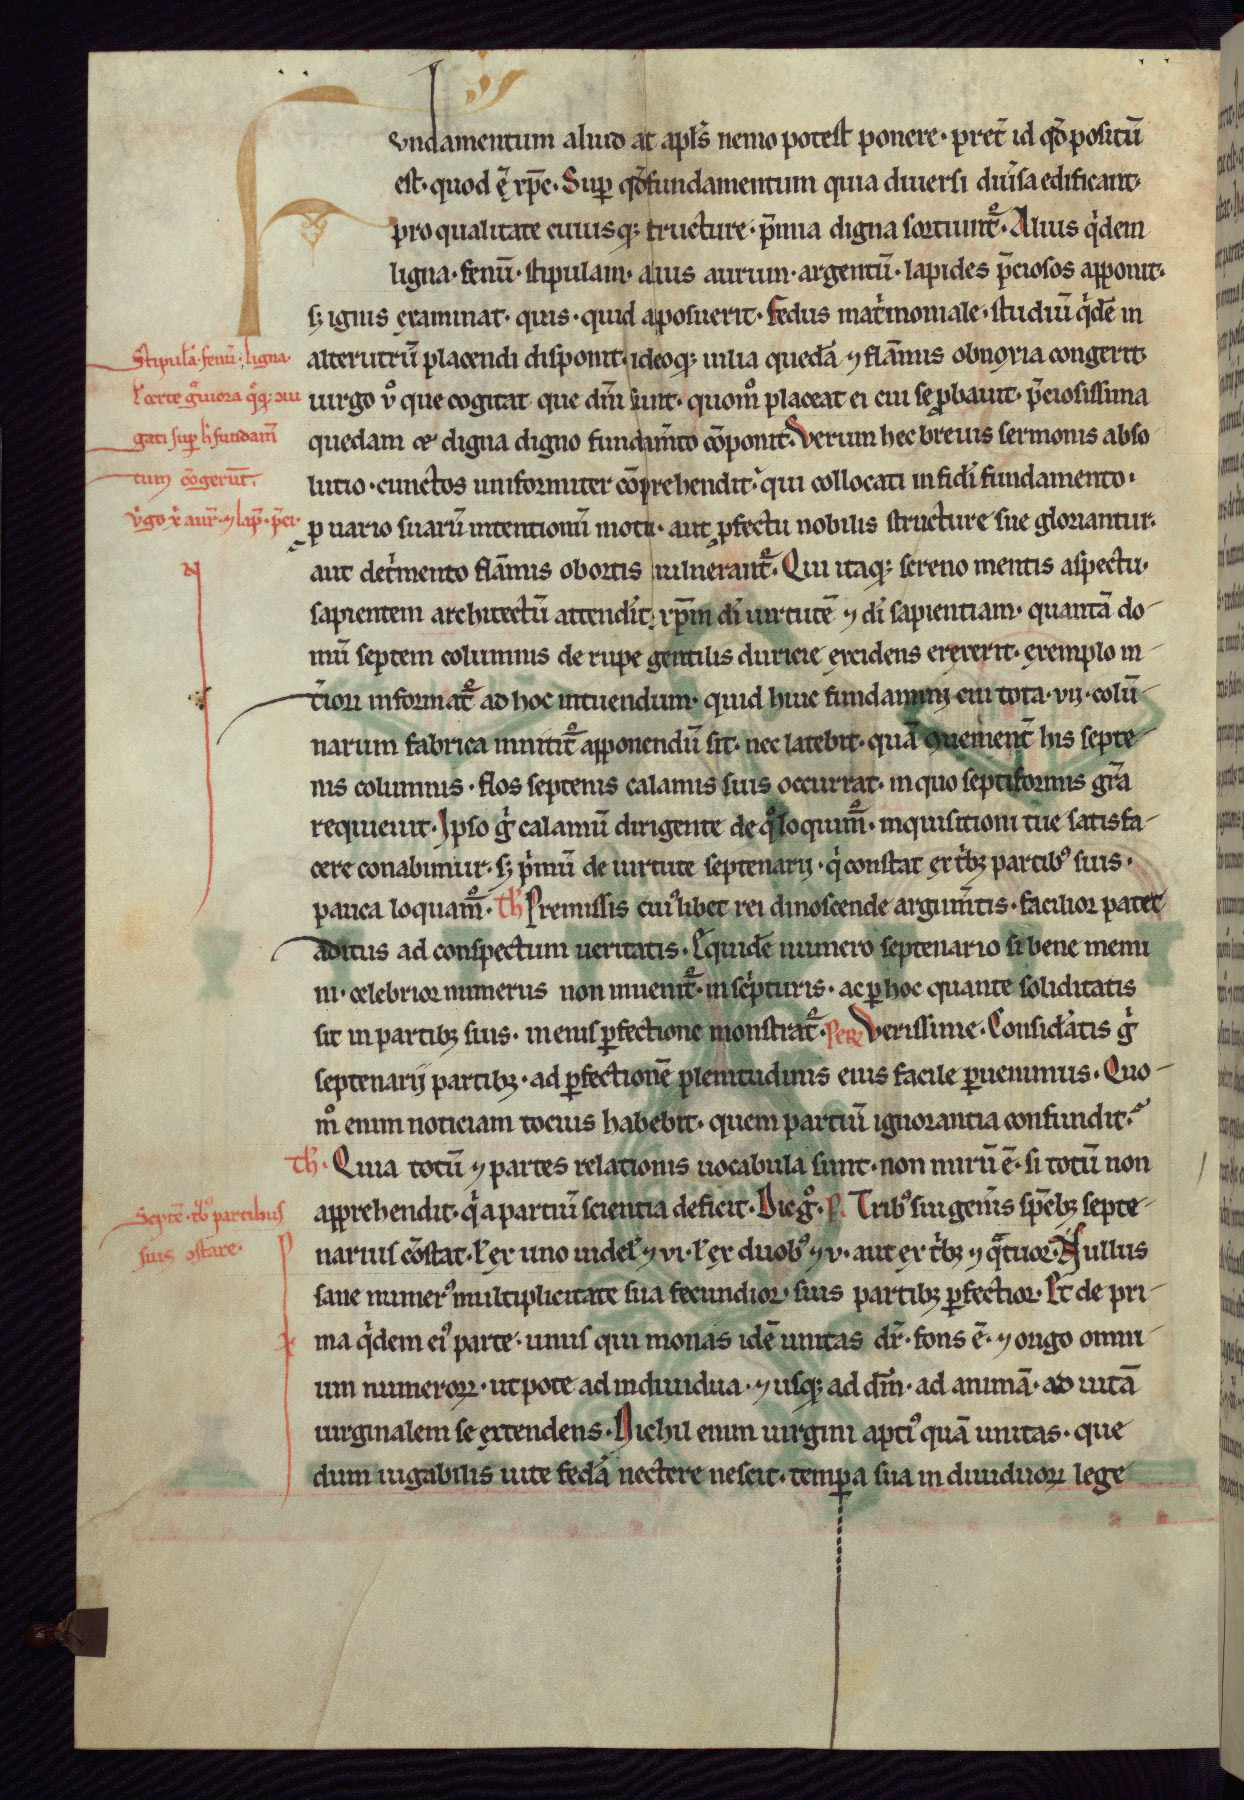 Fundamentum aliud ait apl̄s nemo potest ponere· pret̄ id qđ positū
est· quod ē xp̄c· Sup qđ fundamentum quia diuersi diūsa edificant·
pro qualitate cuiusq; structure· p̄mia digna sortiunt̄· Alius q̇dem
ligna· fenū· stipulam· alius aurum· argentū· lapides p̄ciosos apponit·
sʒ ignis examinat· quis· quid aposuerit· Fedus mat̄moniale· studiū q̇dē in
alterutrū placendi disponit· ideoq; uilia quedā ⁊ flām̄is obnoxia congerit·
uirgo v̊ que cogitat que dn̄i sunt· quom̊ placeat ei cui se ꝓbauit· p̄ciosissima
quedam ac digna digno fundam̄to cōponit· Verum hec breuis sermonis abso
lutio· cunctos uniformiter cōprehendit· qui collocati in fidei fundamento·
ꝓ uario suarū intentionū motu· aut ꝓfectu nobilis structure sue gloriantur·
aut det̄mento flām̄is obortis uulnerant̄· Qui itaq; sereno mentis aspectu·
sapientem architectū attendit· xp̄m dī uirtutē ⁊ dī sapientiam· quantā do-
mū septem columnis de rupe gentilis duricie excidens erexerit· exemplo in-
t̄iori informat̄ ad hoc intuendum· quid huic fundam̄ni cui tota· vii· colū-
narum fabrica innitit̄ apponendū sit· nec latebit· quā ꝯuenient̄ his septe-
nis columnis· flos septenis calamis suis occurrat· in quo septiformis gr̄a
requieuit· Ipso ḡ calamū dirigente de q̊ loquim̄· inquisitioni tue satisfa-
cere conabimur· sʒ p̄mū de uirtute septenarii· q̇ constat ex t̄bʒ partib᾿ suis·
pauca loquam̄· Th̄ Premissis cui᾿libet rei dinoscende argum̄tis· facilior patet
aditus ad conspectum ueritatis· Equidē numero septenario si bene memi
ni· celebrior numerus non inuenit̄· in sc̄pturis· ac ꝑ hoc quante soliditatis
sit in partibʒ suis· in eius ꝑfectione monstrat̄· Per̄ Verissime· Considatis ḡ
septenarii partibʒ· ad ꝑfectionē plenitudinis eius facile ꝑuenimus· Quo-
m̊ enim noticiam tocius habebit· quem partiū ignorantia confundit·
Th̄· Quia totū ⁊ partes relationis uocabula sunt· non mirū ē· si totū non
apprehendit· q̇ a partiū scientia deficit· Dic ḡ· P̄· Trib᾿ sui gen̄is sp̄ebʒ septe-
narius cōstat· ł ex uno uidel᾿ ⁊ vi· ł ex duob᾿ ⁊ v· aut ex t̄bʒ ⁊ q̄tuor· Nullus
sane numer᾿ multiplicitate sua fecundior· suis partibʒ ꝑfectior· Et de pri-
ma q̇dem ei᾿ parte· unus qui monas idē unitas dr̄· fons ē· ⁊ origo omni-
um numeroꝝ· utpote ad indiuidua· ⁊ usq; ad dm̄· ad animā· ad uitā
uirginalem se extendens· Nichil enim uirgini apti᾿ quā unitas· que
dum iugabilis uite fedā nectere nescit· tempera sua indiuiduoꝝ lege
Stipulā· fenū· ligna·
ł certe g̊uiora q̊q; ꝯiu
gati sup h̄ fundam̄
tum cōgerūt·
v̄go v̊ aur̄· ⁊ lap̄· p̄ci·
Septē· tb᾿ partibus
suis ꝯstare·